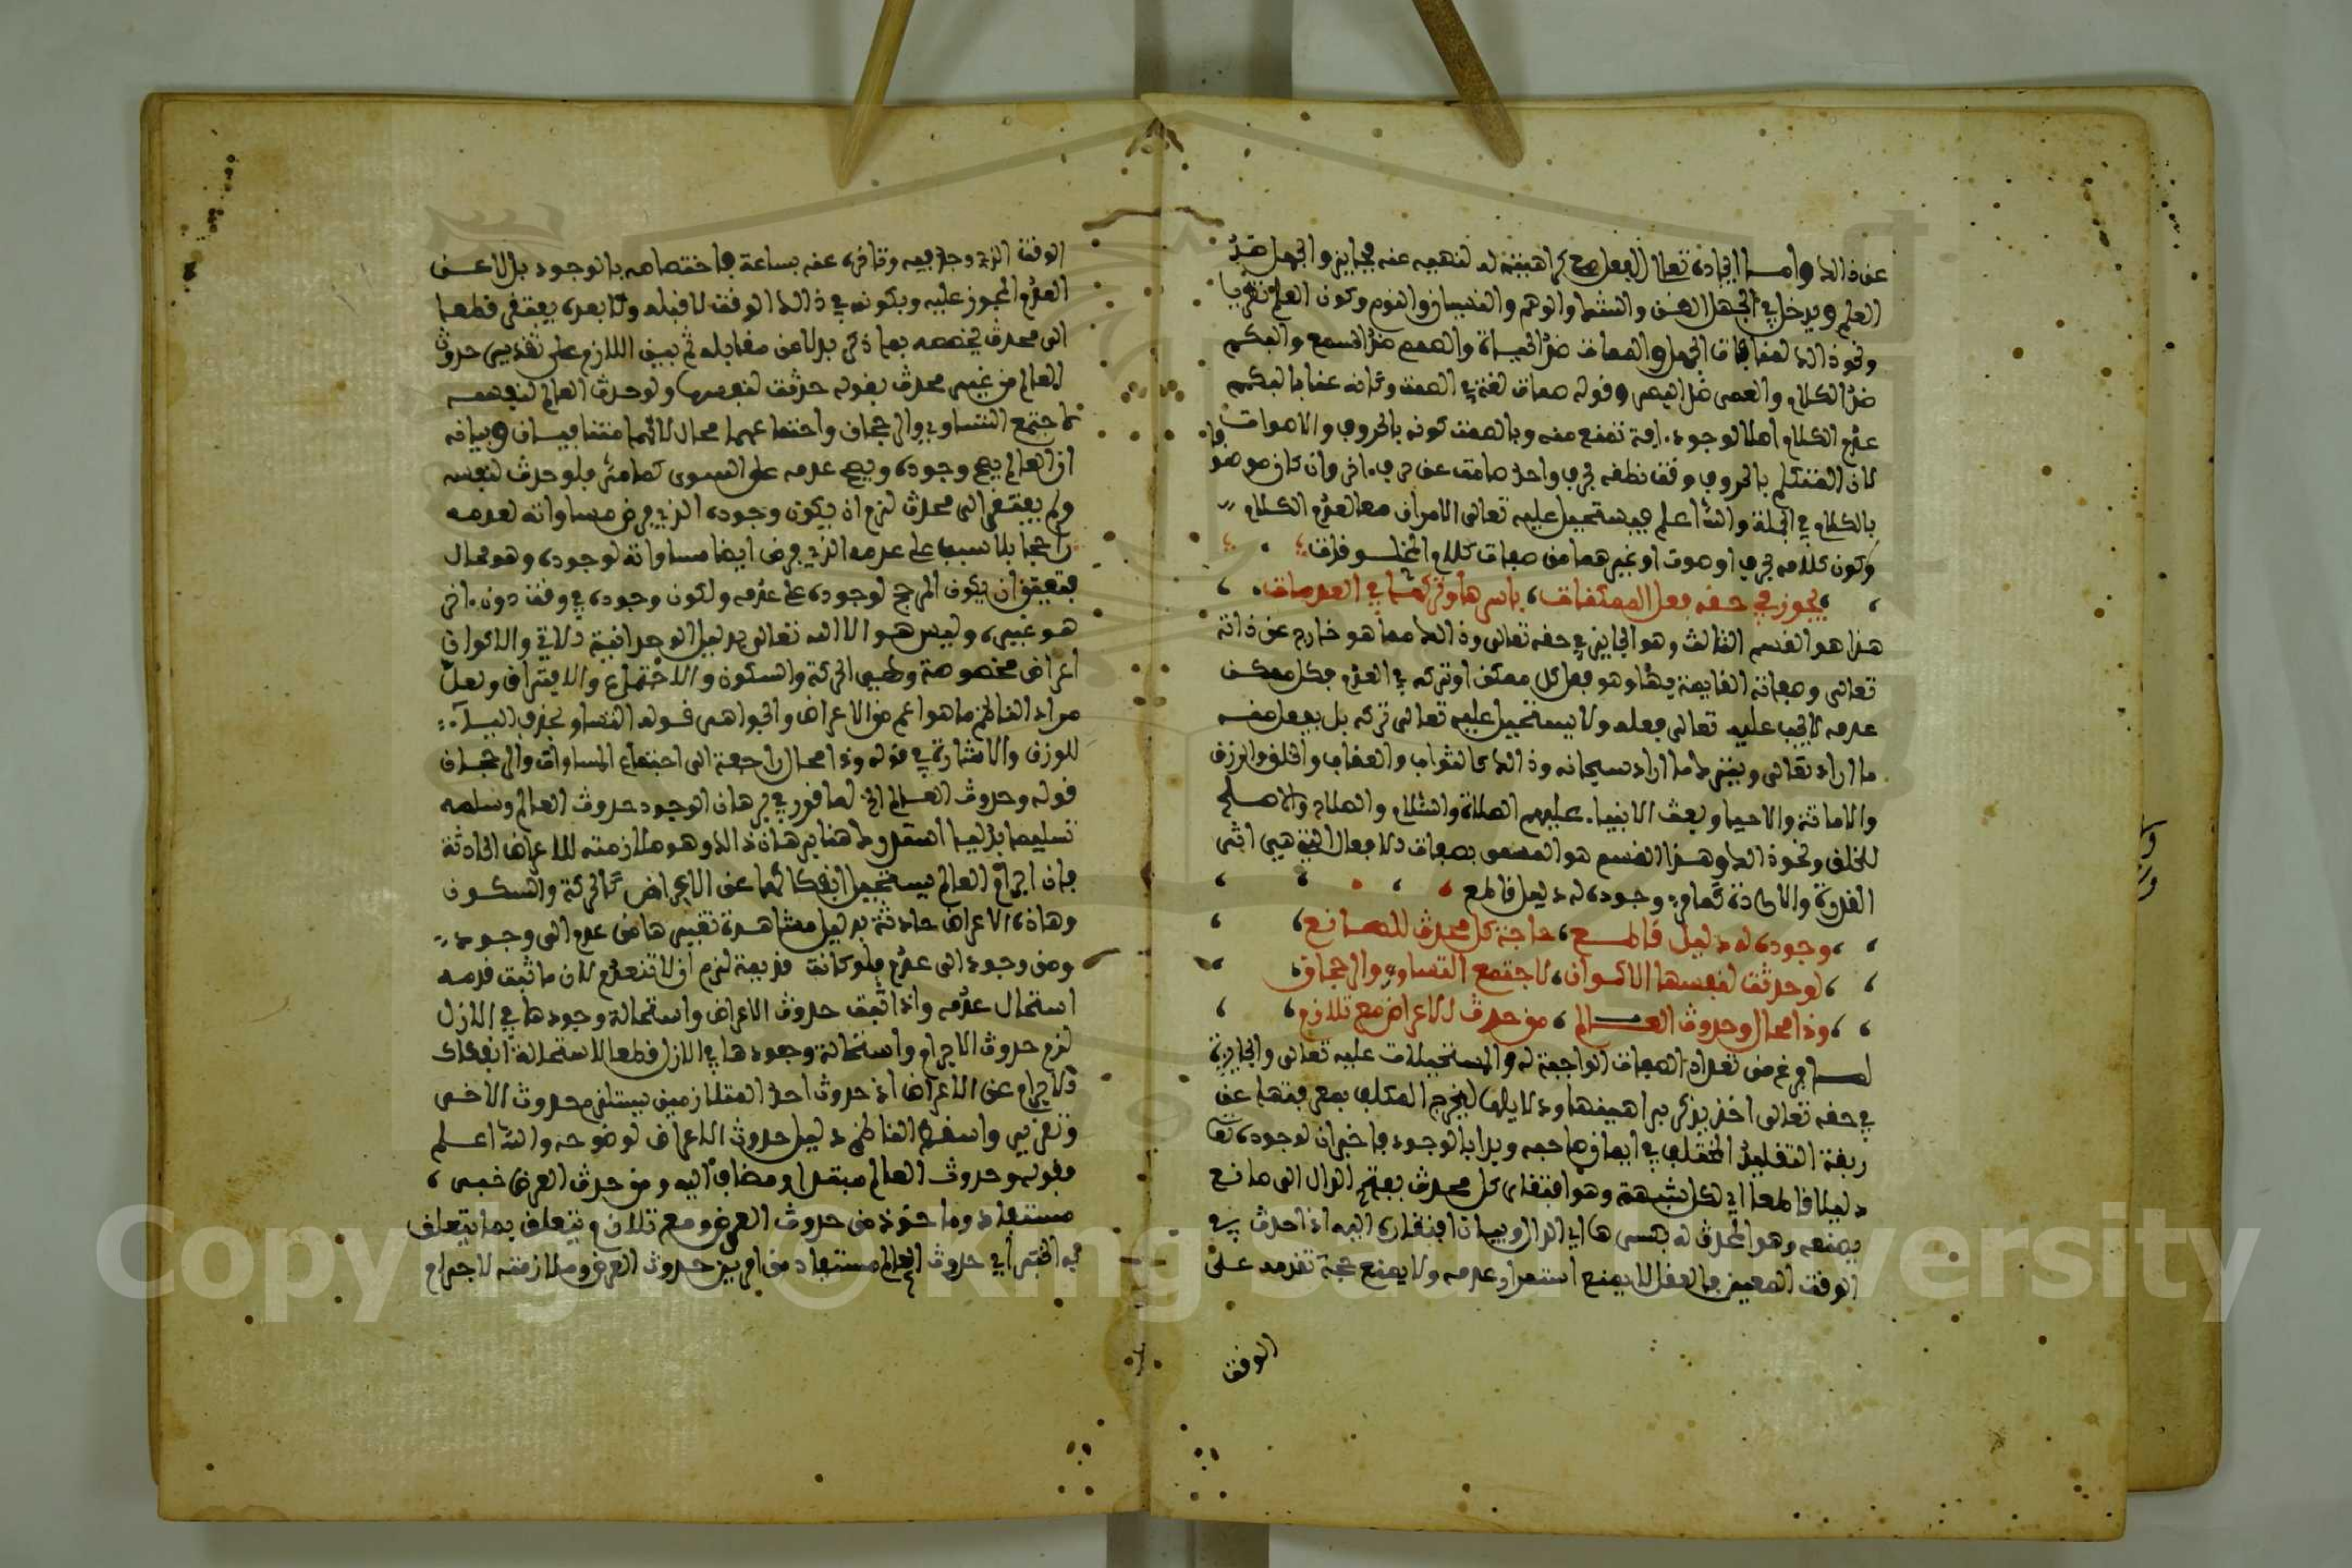 عن ذالك وامـا ايجاده تعالى الفعل مع كراهيته له لنهيه عنه فجايز والجهل ضدّ
العلم ويدخل في الجهل الظن والشك والوهم والنسيان والنوم وكون العلم نظريا
ونحو ذالك لمنافات الجهل والممات ضدّ الحيـاة والصمم ضدّ السمع والبكم
ضدّ الكلام والعمى ضدّ البصر وقوله صمات لغة في الصمت وكانه عنا بالبكم
عدم الكلام اصلا لوجود ءافة تمنع منه وبالصمت كونه بالحروف والاصوات
لان المتكلم بالحروف وقت نطقه بحرف واحد صامت عن حرف ءاخر وان كان موصوفا
بالكلام في الجملة والله اعلم فيستحيل عليه تعالى الامران معا لعدم الكلام
وكون كلامه بحرف او صوت او غيرهما من صفات كلام المخلـوقات
يجوز في حقه فعل الممكنات، باسرها وتركها في العدمات
هذا هو القسم الثالث وهو الجايز في حقه تعالى وذالك مما هو خارج عن ذاته
تعالى وصفاته القايمة بها وهو فعل كل ممكن او تركه في العدم فكل ممكن
عدمه لا يجب عليه تعالى فعله ولا يستحيل عليه تعالى تركه بل يفعل منه
ما اراد تعالى ويترك ما اراد سبحانه وذالك كالثواب والعقاب والخلق والرزق
والاماتة والاحيا وبعث الانبيا عليهم الصلاة والسلام والصلاح والاصلح
للخلق ونحو ذالك وهذا القسم هو المسمى بصفات الافعال التي هي اثر
القدرة والارادة كما مر وجوده له دليل قاطع
وجوده له دليل قاطـع، حاجة كل محدث للصـانع
لو حدثت لنفسها الاكـوان، لاجتمع التساوي والرجحان
وذا محال وحدوث العـالم، من حدث الاعراض مع تلازم
لمـا فرغ من تعداد الصفات الواجبة له والمستحيلات عليه تعالى والجايزة
في حقه تعالى اخذ يذكر براهينها ودلايلها ليخرج المكلف بمعرفتها عن
ربقة التقليد المختلف في ايمان صاحبه وبدا بالوجود فاخبر ان لوجوده تعالى
دليلا قاطعا اي لكل شبهة وهو افتقار كل محدث بفتح الدال الى صانع
يصنعه وهو المحدث له بكسرها اي الدال وبيان افتقاره اليه اذا حدث في
الوقت المعين فالعقل لا يمنع استمرار عدمه ولا يمنع صحة تقدمه على
الوقت
الوقت الذي وجد فيه وتاخره عنه بساعة فاختصاصه بالوجود بدلا عـن
العدم المجوز عليه وبكونه في ذالك الوقت لا قبله ولا بعده يفتقر قطعا
الى محدث يخصصه بما ذكر بدلا عن مقابله ثم بين اللازم على تقدير حدوث
العالم من غير محدث بقوله حدثت لنفسها ولو حدث العالم لنفسـه
لاجتمع التساوي والرجحان واجتماعهما محال لانهما متنافيـان وبيانه
ان العالم يصح وجوده ويصح عدمه على السوى كما مر فلو حدث لنفسه
ولم يفتقر الى محدث لزم ان يكون وجوده الذي فرض مساواته لعدمـه
راجحا بلا سبب على عدمه الذي فرض ايضا مساواته لوجوده وهو محال
فتعين ان يكون المرجح لوجوده على عدمه ولكون وجوده في وقت دون ءاخر
هو غيره، وليس هـو الا الله تعالى بدليل الوحدانية الاتي والاكوان
اعراض مخصوصة وهي الحركة والسكون والاجتماع والافتراق ولعل
مراد الناظم ما هو اعم من الاعراض والجواهر قـوله التساو بحذف اليـا
للوزن والاشارة في قوله وذا محال راجعة الى اجتماع المساوات والرجحـان
قوله وحدوث العـالم الخ لما قرر في برهان الوجود حدوث العالم وسلمه
تسليما بدليـا استدل هنا برهان ذالك وهو ملازمته للاعراض الحادثة
فان اجرام العالم يستحيل انفكاكها عن الاعراض كالحركة والسكـون
وهاذه الاعراض حادثة بدليل مشاهدة تغيرها من عدم الى وجـود
ومن وجود الى عدم فلو كانت قديمة لزم ان لا تنعدم لان ما ثبت قدمـه
استحال عدمه واذا ثبت حدوث الاعراض واستحالة وجودها في الازل
لزم حدوث الاجرام واستحالة وجودها في الازل قطعا لاستحالة انفكاك
الاجرام عن الاعراض اذ حدوث احد المتلازمين يستلزم حدوث الاخـر
وتقرير واسقط الناظم دليل حدوث الاعراض لوضوحه والله اعـلم
فقوله وحدوث العالم مبتدا ومضاف اليه ومن حدث العرض خبـر،
مستفاد وماخوذ من حدوث العرض ومع تلازم يتعلق بما يتعلق
به الخبر اي حدوث العالم مستفاد من امرين حدوث العرض وملازمته لاجرام